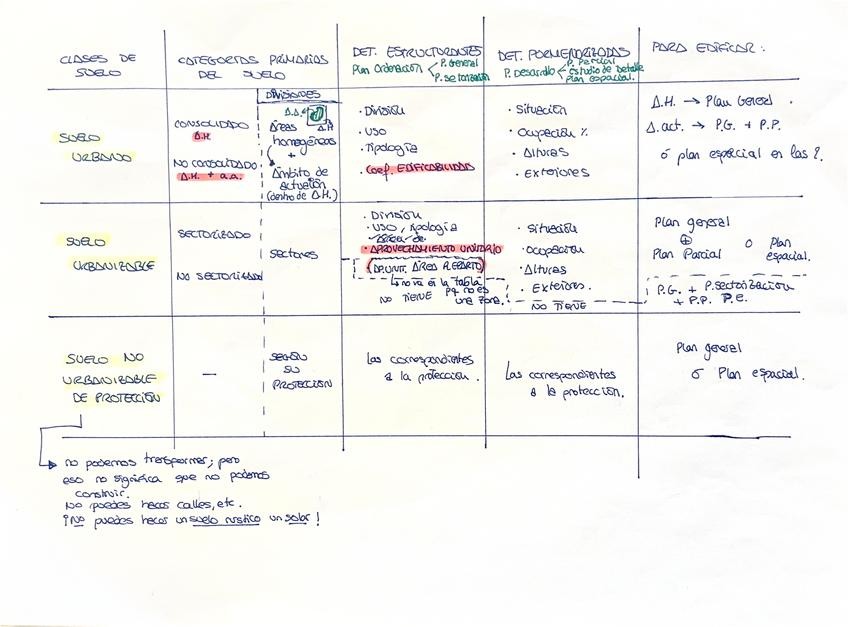 CLASES DE
SUELO
CATEGORÍAS PRIMARIAS
DEL SUELO
DET. ESTRUCTURANTES
Plan Ordenación < P. General
P. Sectorización
DET. PORMENORIZADAS
P. Desarrollo < P. Parcial
Estudio de Detalle
Plan especial.
PARA EDIFICAR:
DIVISIONES
SUELO
URBANO
CONSOLIDADO
A.H.
NO CONSOLIDADO
A.H. + a.a.
A.A.
A.H
áreas
homogéneas
+
Ámbito de
actuación
(dentro de A.H.)
· División
· USO
· Tipología
· Coef. EDIFICABILIDAD
· Situación
· Ocupación %
· Alturas
· Exteriores
A.H. → Plan General.
A. act. → P.G. + P.P.
ó plan especial en las 2.
SUELO
URBANIZABLE
SECTORIZADO
NO SECTORIZADO
SECTORES
· División
· USO, Tipología
· Área de
· APROVECHAMIENTO UNITARIO
(AP. UNIT. ÁREA REPARTO)
↳ no va en la tabla
pq no es
una zona.
NO TIENE
· Situación
· Ocupación
· Alturas
· Exteriores.
NO TIENE
Plan general
⊕
Plan Parcial o Plan
especial.
P.G. + P. sectorización
+ P.P. P.e.
SUELO NO
URBANIZABLE
DE PROTECCIÓN
—
SEGÚN
SU
PROTECCIÓN
Las correspondientes
a la protección.
Las correspondientes
a la protección.
Plan general
ó Plan especial.
no podemos transformar; pero
eso no significa que no podamos
construir.
No puedes hacer calles, etc.
¡No puedes hacer un suelo rústico un solar!